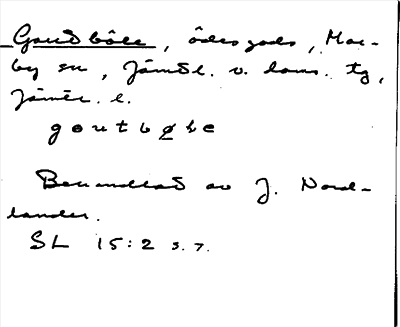 Gautböle, ödesgods, Mar-
by sn, Jämtl. v. doms. tg,
Jämtl. l.
goutbøle
Behandlat av J. Nord-
lander.
SL 15:2 s. 7.